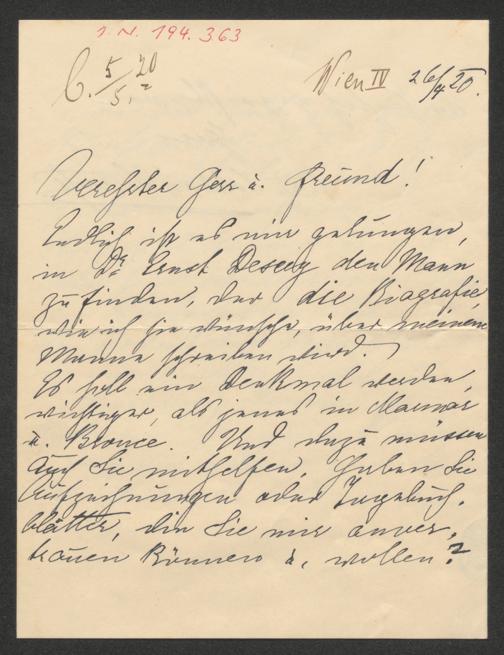 I. N. 194.363
b. 5/5. 20
Wien IV 26/4 20.
Verehrter Herr u. Freund!
Endlich ist es mir gelungen,
in Dr. Ernst Decsey den Mann
zu finden, der die Biografie
wie ich sie wünsche, über meinen
Mann schreiben wird.
Es soll ein Denkmal werden,
wichtiger, als jenes in Marmor
u. Bronce. Und dazu müssen
auch Sie mithelfen. Haben Sie
Aufzeichnungen oder Tagebuch-
blätter, die Sie mir anver-
trauen können u. wollen?